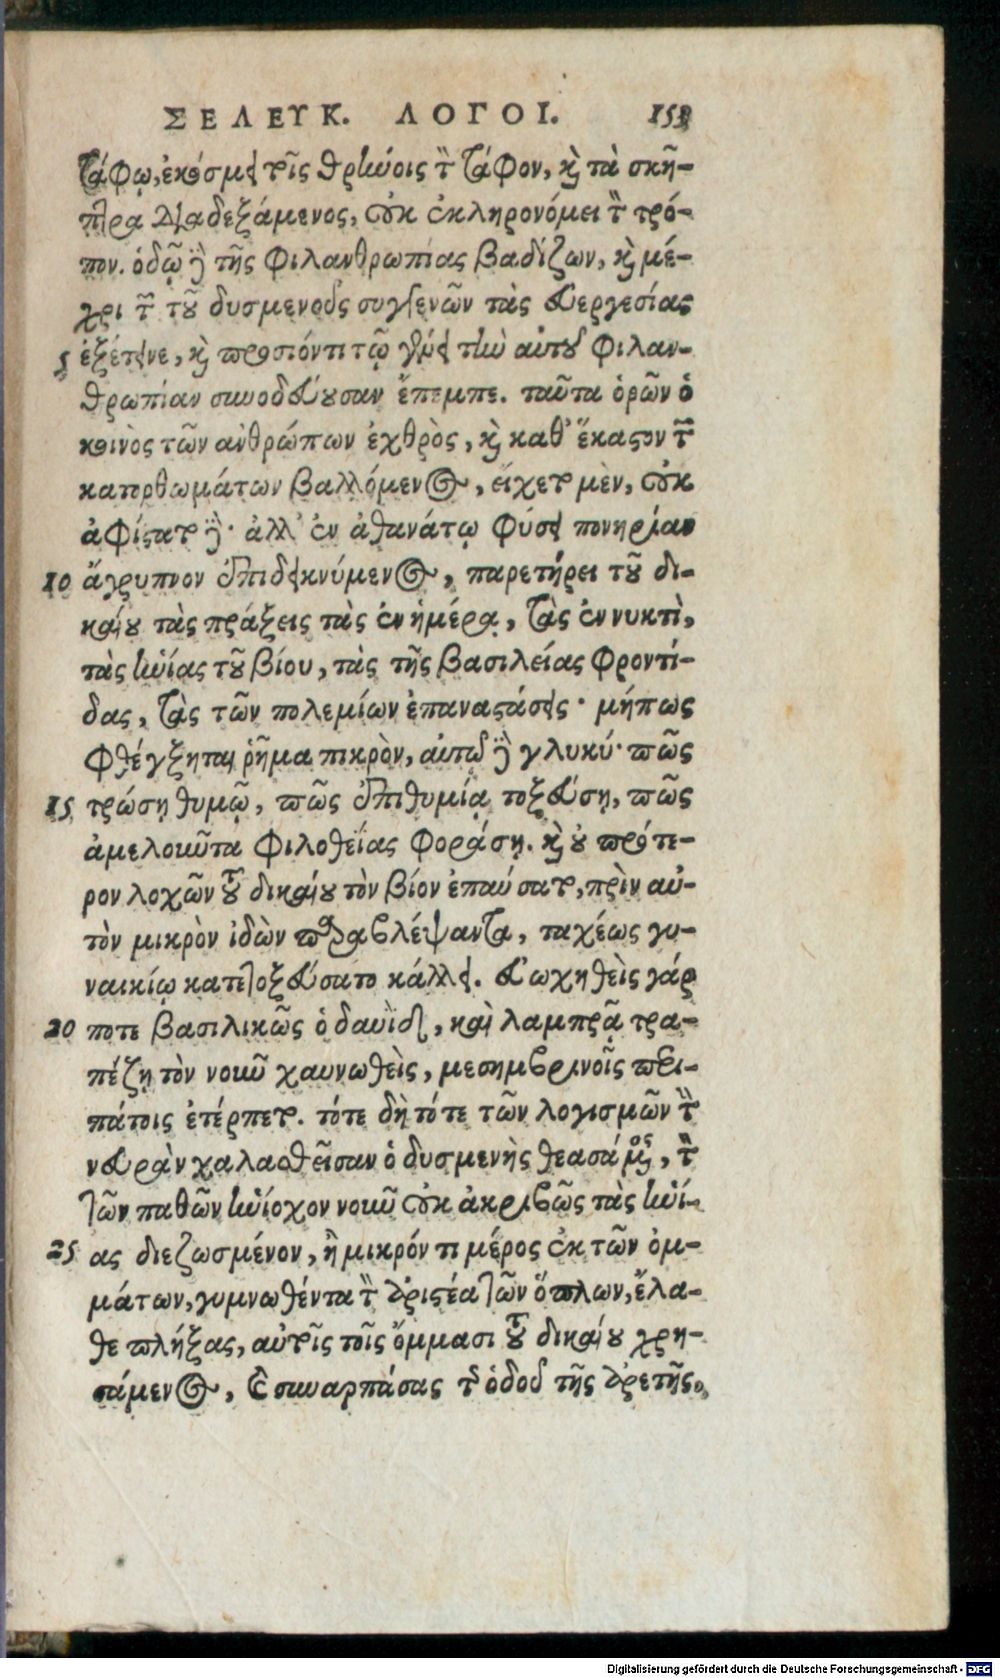 ΣΕΛΕΥΚ. ΛΟΓΟΙ. 153
τάφῳ, ἐκόσμει τοῖς θρήνοις τὸν τάφον, καὶ τὰ σκῆ-
πτρα διαδεξάμενος, οὐκ ἐκληρονόμει τὸν τρό-
πον. ὁδῷ δὲ τῆς φιλανθρωπίας βαδίζων, καὶ μέ-
χρι τῶν τοῦ δυσμενοῦς συγγενῶν τὰς εὐεργεσίας
5 ἐξέτεινε, καὶ προσιόντι τῷ γήρει τὴν αὐτοῦ φιλαν-
θρωπίαν συνοδεύουσαν ἔπεμπε. ταῦτα ὁρῶν ὁ
κοινὸς τῶν ἀνθρώπων ἐχθρὸς, καὶ καθ' ἕκαστον τῶν
κατορθωμάτων βαλλόμενος, εἴχετο μὲν, οὐκ
ἀφίστατο δέ· ἀλλ' ἐν ἀθανάτῳ φύσει πονηρίαν
10 ἄγρυπνον ἐπιδεικνύμενος, παρετήρει τοῦ δι-
καίου τὰς πράξεις τὰς ἐν ἡμέρᾳ, τὰς ἐν νυκτὶ,
τὰς ἡνίας τοῦ βίου, τὰς τῆς βασιλείας φροντί-
δας, τὰς τῶν πολεμίων ἐπαναστάσεις· μήπως
φθέγξηται ῥῆμα πικρὸν, αὐτῷ δὲ γλυκύ· πῶς
15 τρώσῃ θυμῷ, πῶς ἐπιθυμίᾳ τοξεύσῃ, πῶς
ἀμελοῦντα φιλοθεΐας φοράσῃ. καὶ οὐ πρότε-
ρον λοχῶν τοῦ δικαίου τὸν βίον ἐπαύσατο, πρὶν αὐ-
τὸν μικρὸν ἰδὼν παραβλέψαντα, ταχέως γυ-
ναικίῳ κατετοξεύσατο κάλλει. εὐωχηθεὶς γάρ
20 ποτε βασιλικῶς ὁ δαυῒδ, καὶ λαμπρᾷ τρα-
πέζῃ τὸν νοῦν χαυνωθεὶς, μεσημβρινοῖς περι-
πάτοις ἐτέρπετο. τότε δὴ τότε τῶν λογισμῶν τὴν
νευρὰν χαλασθεῖσαν ὁ δυσμενὴς θεασάμενος, τὸν
τῶν παθῶν ἡνίοχον νοῦν οὐκ ἀκριβῶς τὰς ἡνί-
25 ας διεζωσμένον, ἢ μικρόν τι μέρος ἐκ τῶν ὀμ-
μάτων, γυμνωθέντα τὸν ἀριστέα τῶν ὅπλων, ἔλα-
θε πλήξας, αὐτοῖς τοῖς ὄμμασι τοῦ δικαίου χρη-
σάμενος, καὶ συναρπάσας τῆς ὁδοῦ τῆς ἀρετῆς,
Digitalisierung gefördert durch die Deutsche Forschungsgemeinschaft - DFG